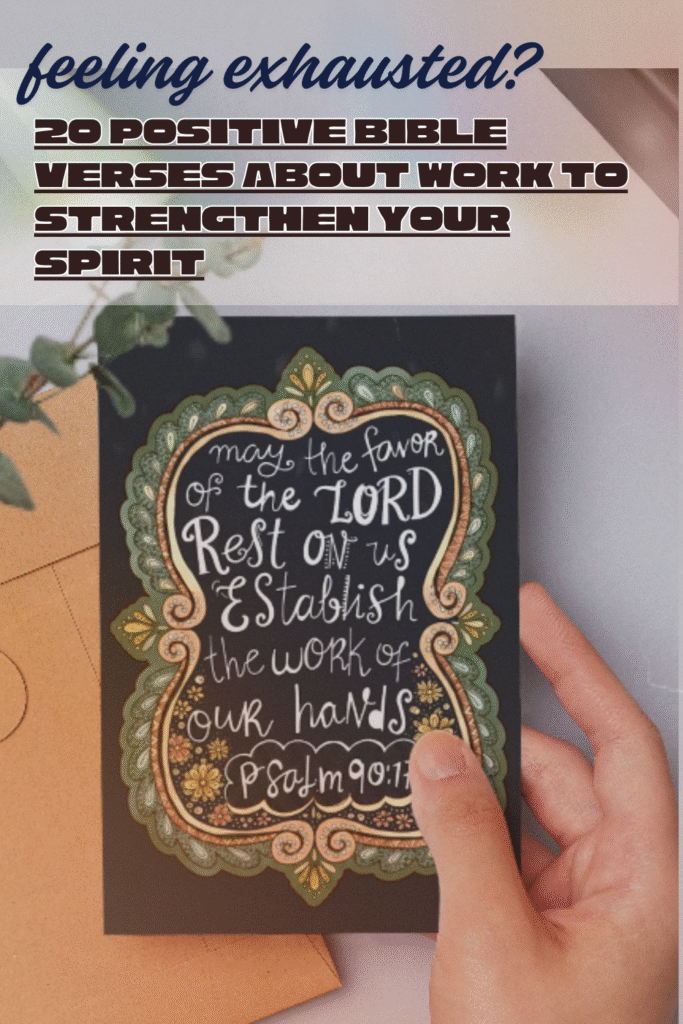 feeling exhausted?
20 POSITIVE BIBLE
VERSES ABOUT WORK TO
STRENGTHEN YOUR
SPIRIT
may the favor
of the LORD
Rest ON us
Establish
the work of
our hands
Psalm 90:17